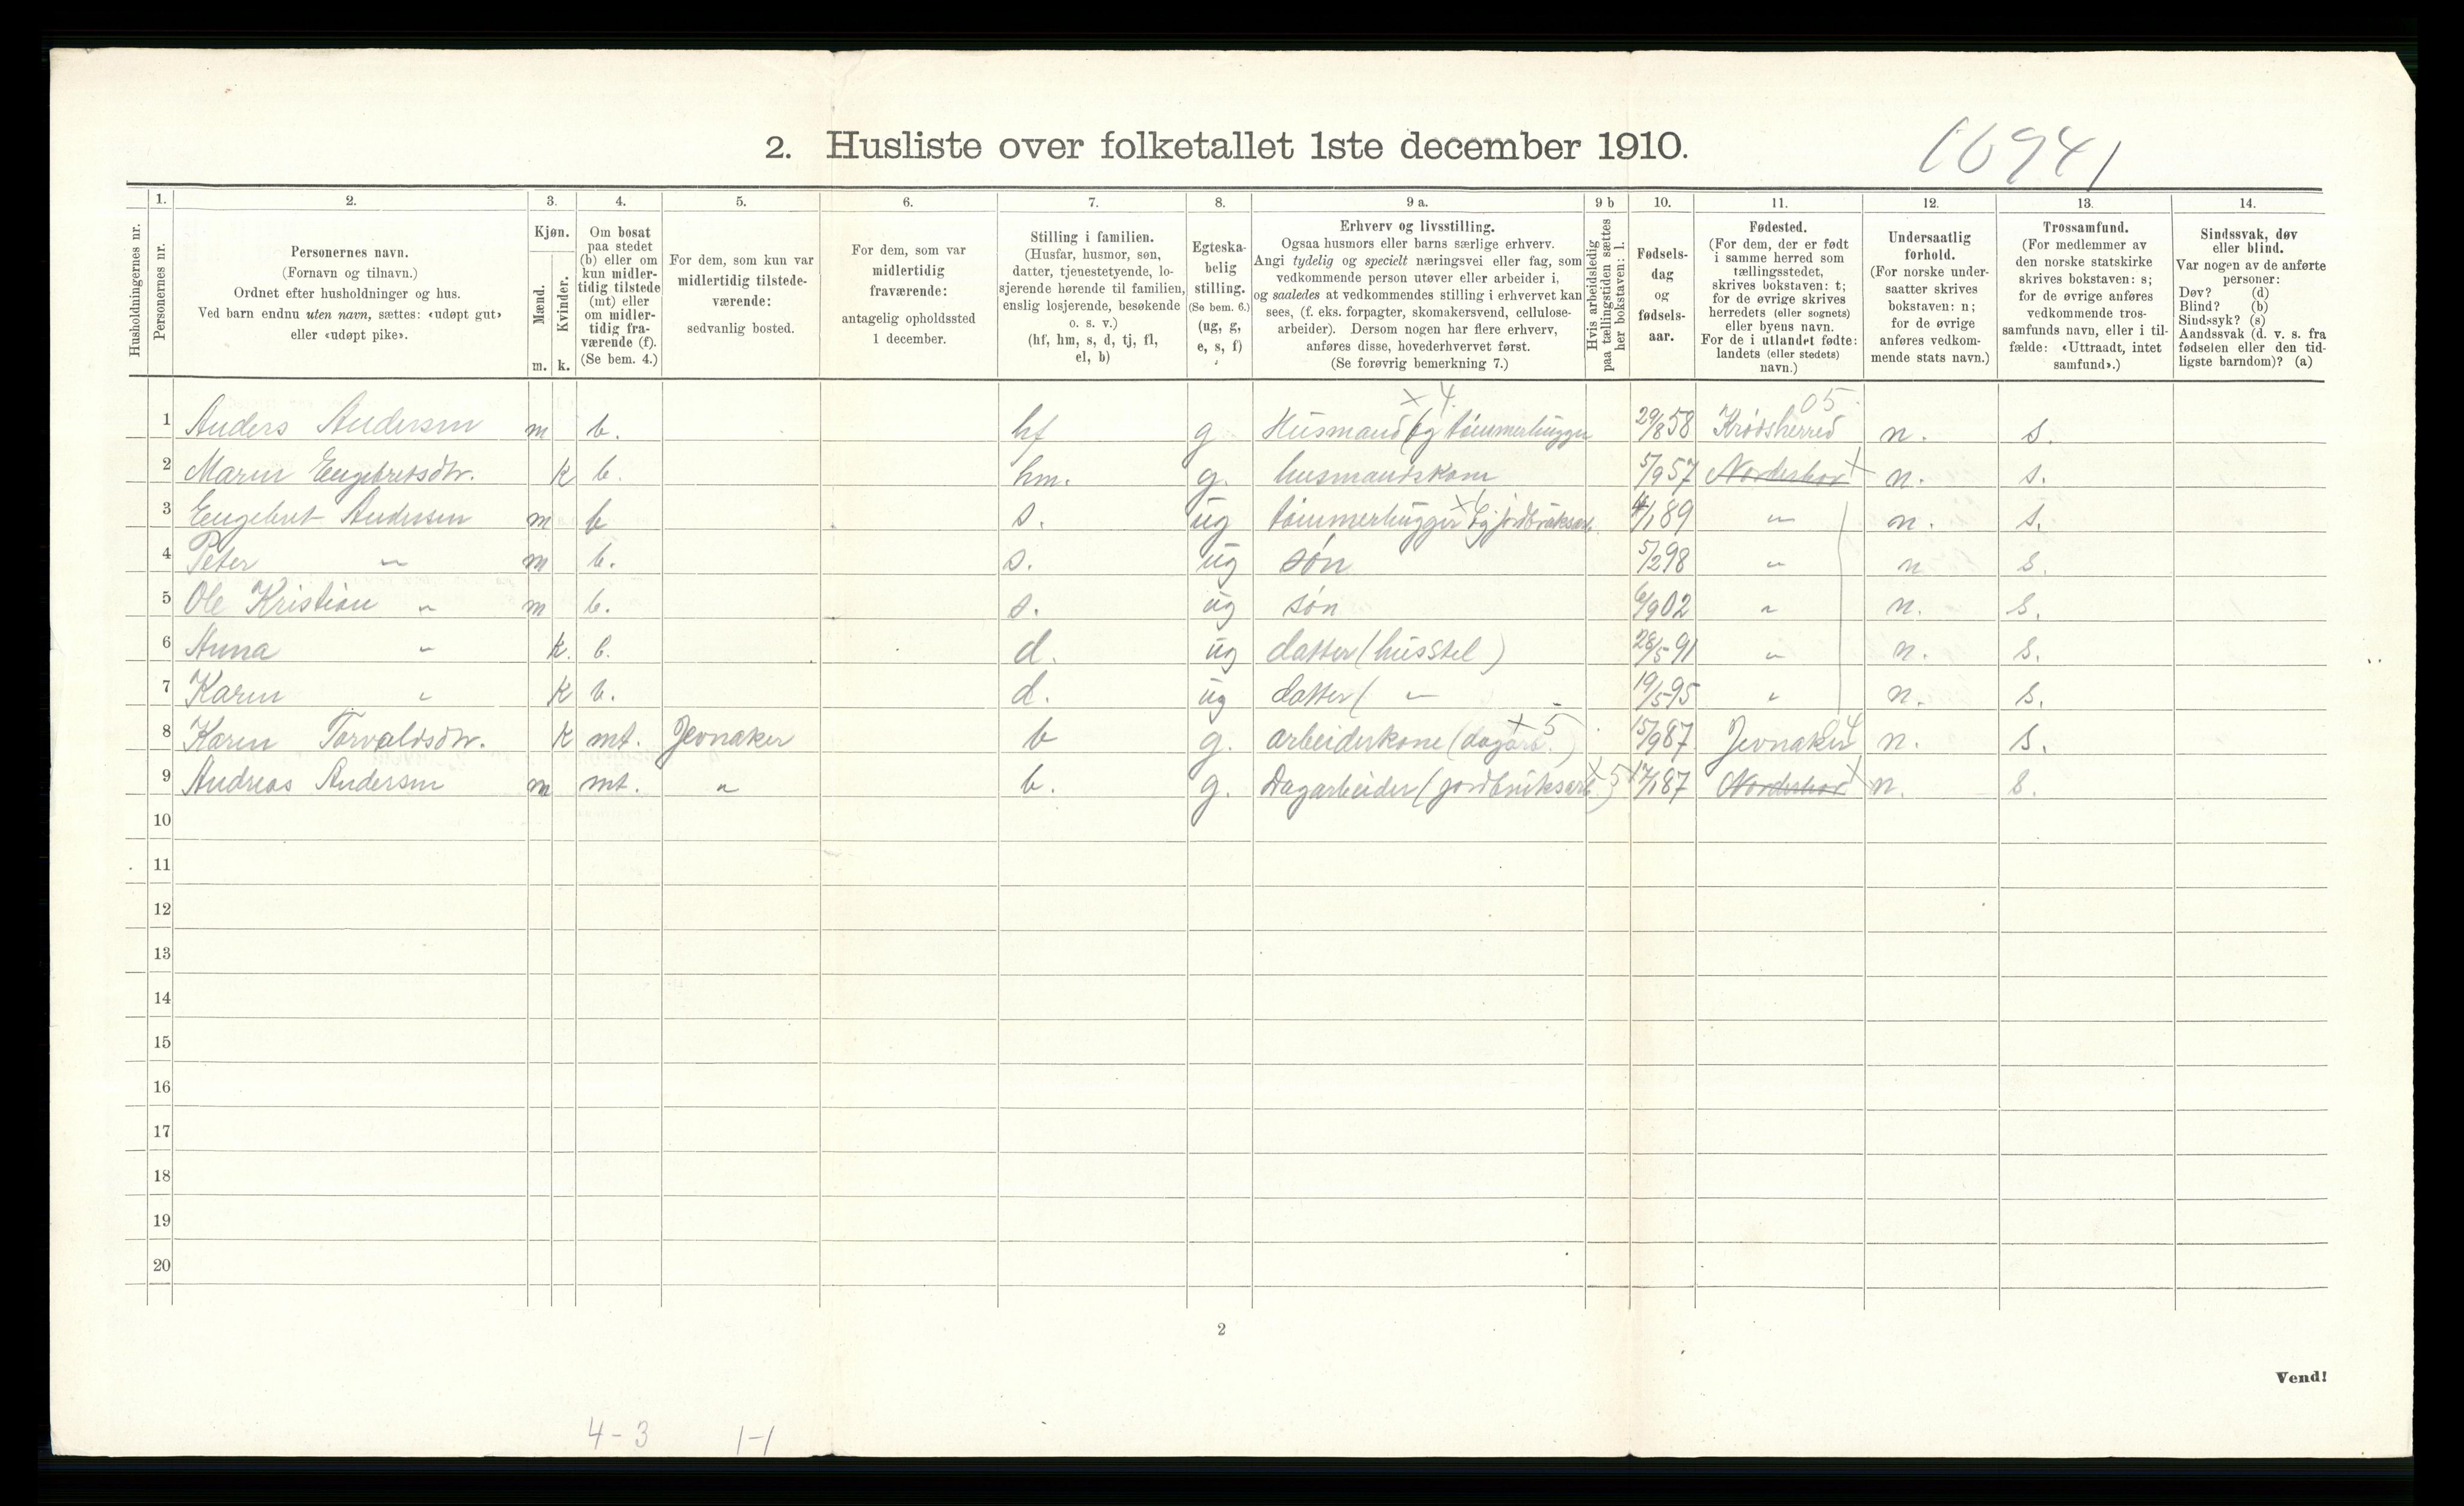 2. Husliste over folketallet 1ste december 1910.
16941
1. 2. 3. 4. 5. 6. 7. 8. 9 a. 9 b 10. 11. 12. 13. 14.
Husholdningernes nr.
Personernes nr.
Personernes navn.
(Fornavn og tilnavn.)
Ordnet efter husholdninger og hus.
Ved barn endnu uten navn, sættes: «udøpt gut»
eller «udøpt pike».
Kjøn.
Mænd.
Kvinder.
m. k.
Om bosat
paa stedet
(b) eller om
kun midler-
tidig tilstede
(mt) eller
om midler-
tidig fra-
værende (f).
(Se bem. 4.)
For dem, som kun var
midlertidig tilstede-
værende:
sedvanlig bosted.
For dem, som var
midlertidig
fraværende:
antagelig opholdssted
1 december.
Stilling i familien.
(Husfar, husmor, søn,
datter, tjenestetyende, lo-
sjerende hørende til familien,
enslig losjerende, besøkende
o. s. v.)
(hf, hm, s, d, tj, fl,
el, b)
Egteska-
belig
stilling.
(Se bem. 6.)
(ug, g,
e, s, f)
Erhverv og livsstilling.
Ogsaa husmors eller barns særlige erhverv.
Angi tydelig og specielt næringsvei eller fag, som
vedkommende person utøver eller arbeider i,
og saaledes at vedkommendes stilling i erhvervet kan
sees, (f. eks. forpagter, skomakersvend, cellulose-
arbeider). Dersom nogen har flere erhverv,
anføres disse, hovederhvervet først.
(Se forøvrig bemerkning 7.)
Hvis arbeidsledig
paa tællingstiden sættes
her bokstaven: l.
Fødsels-
dag
og
fødsels-
aar.
Fødested.
(For dem, der er født
i samme herred som
tællingsstedet,
skrives bokstaven: t;
for de øvrige skrives
herredets (eller sognets)
eller byens navn.
For de i utlandet fødte:
landets (eller stedets)
navn.)
Undersaatlig
forhold.
(For norske under-
saatter skrives
bokstaven: n;
for de øvrige
anføres vedkom-
mende stats navn.)
Trossamfund.
(For medlemmer av
den norske statskirke
skrives bokstaven: s;
for de øvrige anføres
vedkommende tros-
samfunds navn, eller i til-
fælde: «Uttraadt, intet
samfund».)
Sindssvak, døv
eller blind.
Var nogen av de anførte
personer:
Døv? (d)
Blind? (b)
Sindssyk? (s)
Aandssvak (d. v. s. fra
fødselen eller den tid-
ligste barndom)? (a)
x 4. 05
1 Anders Andersen m b. hf g Husmand og tømmerhugger 29/8 58 Krødsherred n. s.
2 Maren Engebretsdtr. k b. hm. g. husmandskone 5/9 57 Norderhov x n. s.
3 Engebret Andersen m b s. ug tømmerhugger x og jordbruksarb. 4/1 89 " n. s.
4 Peter " m b. s. ug søn 5/2 98 " n s.
5 Ole Kristian " m b. s. ug søn 6/9 02 " n. s.
6 Anna " k. b. d. ug datter (husstel) 28/5 91 " n. s.
7 Karen " k b. d. ug datter ( " 19/5 95 " n. s.
8 Karen Torvaldsdtr. k mt. Jevnaker b g. arbeiderkone (dagarb.) x 5 15/9 87 Jevnaker n. s.
9 Andreas Andersen m mt. " b. g. Dagarbeider (jordbruksarb.) x 5 17/1 87 Norderhov x n. s.
10
11
12
13
14
15
16
17
18
19
20
2
Vend!
4-3 1-1